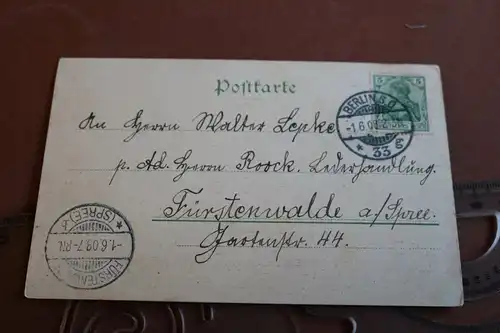 Postkarte
5 5
BERLIN S.O.
-1.6.02.
* 33 g
An Herrn Walter Lepke
p. Ad. Herrn Roock. Lederhandlung.
Fürstenwalde a/Spree.
Gartenstr. 44.
* (SPREE) *
-1.6.0 7-8N.
FÜRSTENW